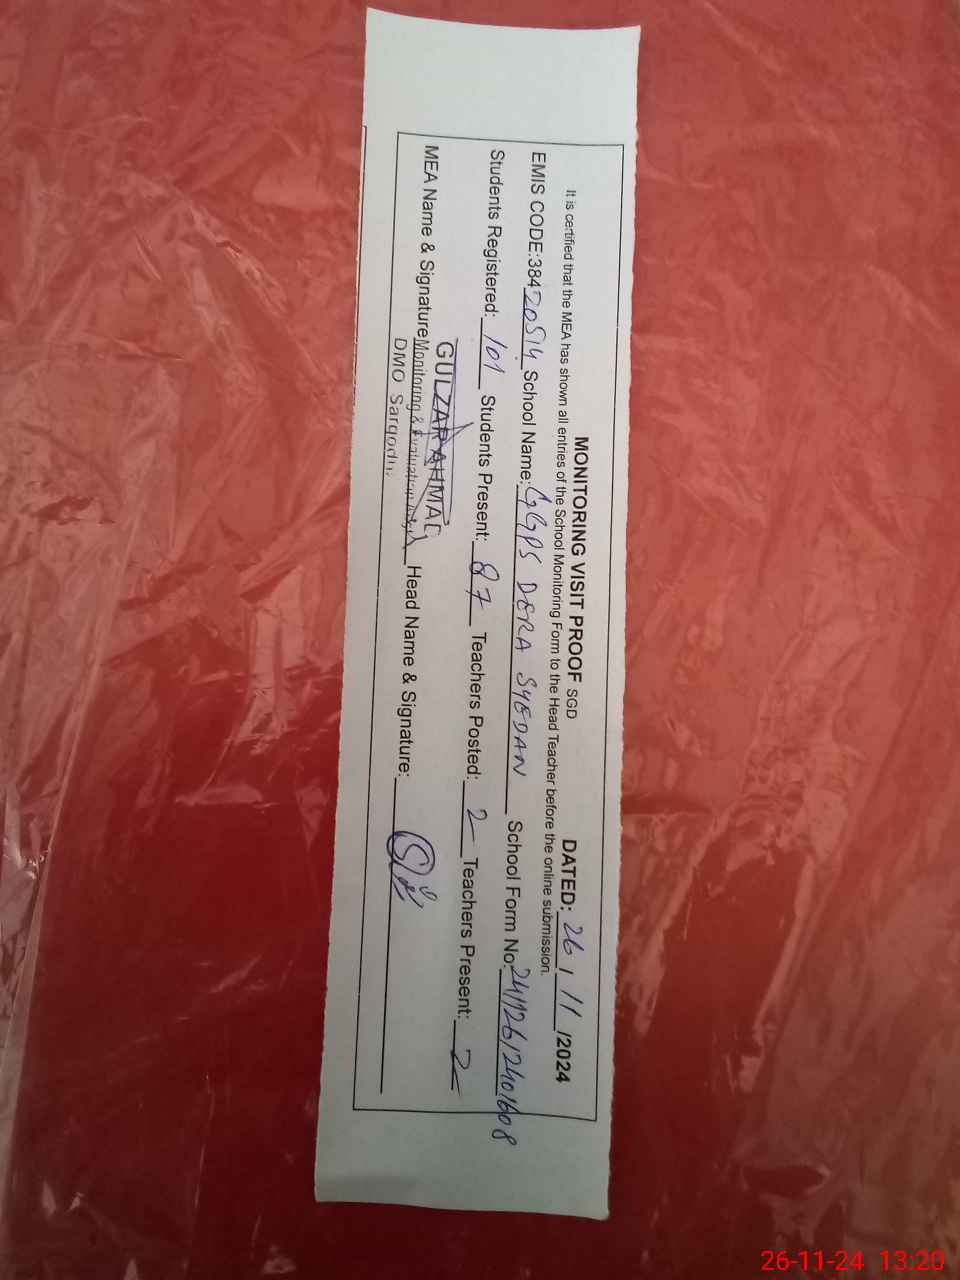 MONITORING VISIT PROOF SGD DATED: 26 / 11 /2024
It is certified that the MEA has shown all entries of the School Monitoring Form to the Head Teacher before the online submission.
EMIS CODE:38420514 School Name: GGPS DERA SYEDAN School Form No: 241126/2401608
Students Registered: 101 Students Present: 87 Teachers Posted: 2 Teachers Present: 2
GULZAR AHMAD
MEA Name & Signature Monitoring & Evaluation Head Name & Signature:
DMO Sargodha
26-11-24 13:20